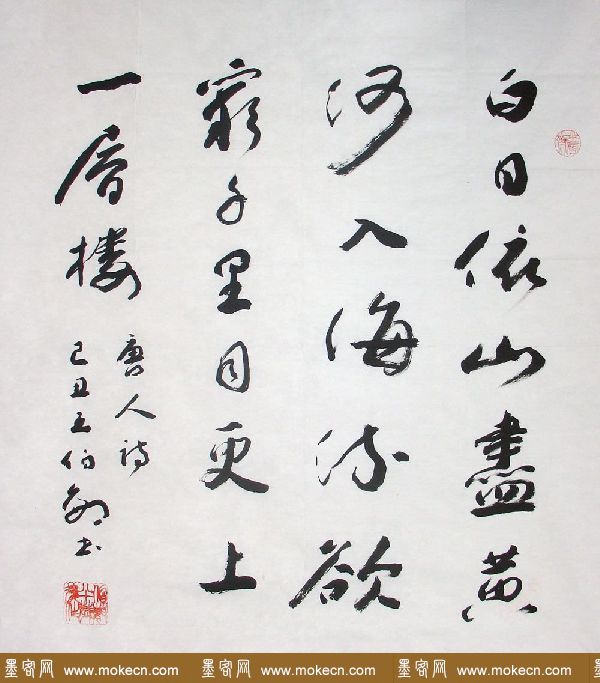 白日依山盡黄
河入海流欲
窮千里目更上
一層楼
唐人詩
己丑王伯书
墨客网 www.mokecn.com 墨客网 www.mokecn.com 墨客网 www.mokecn.com